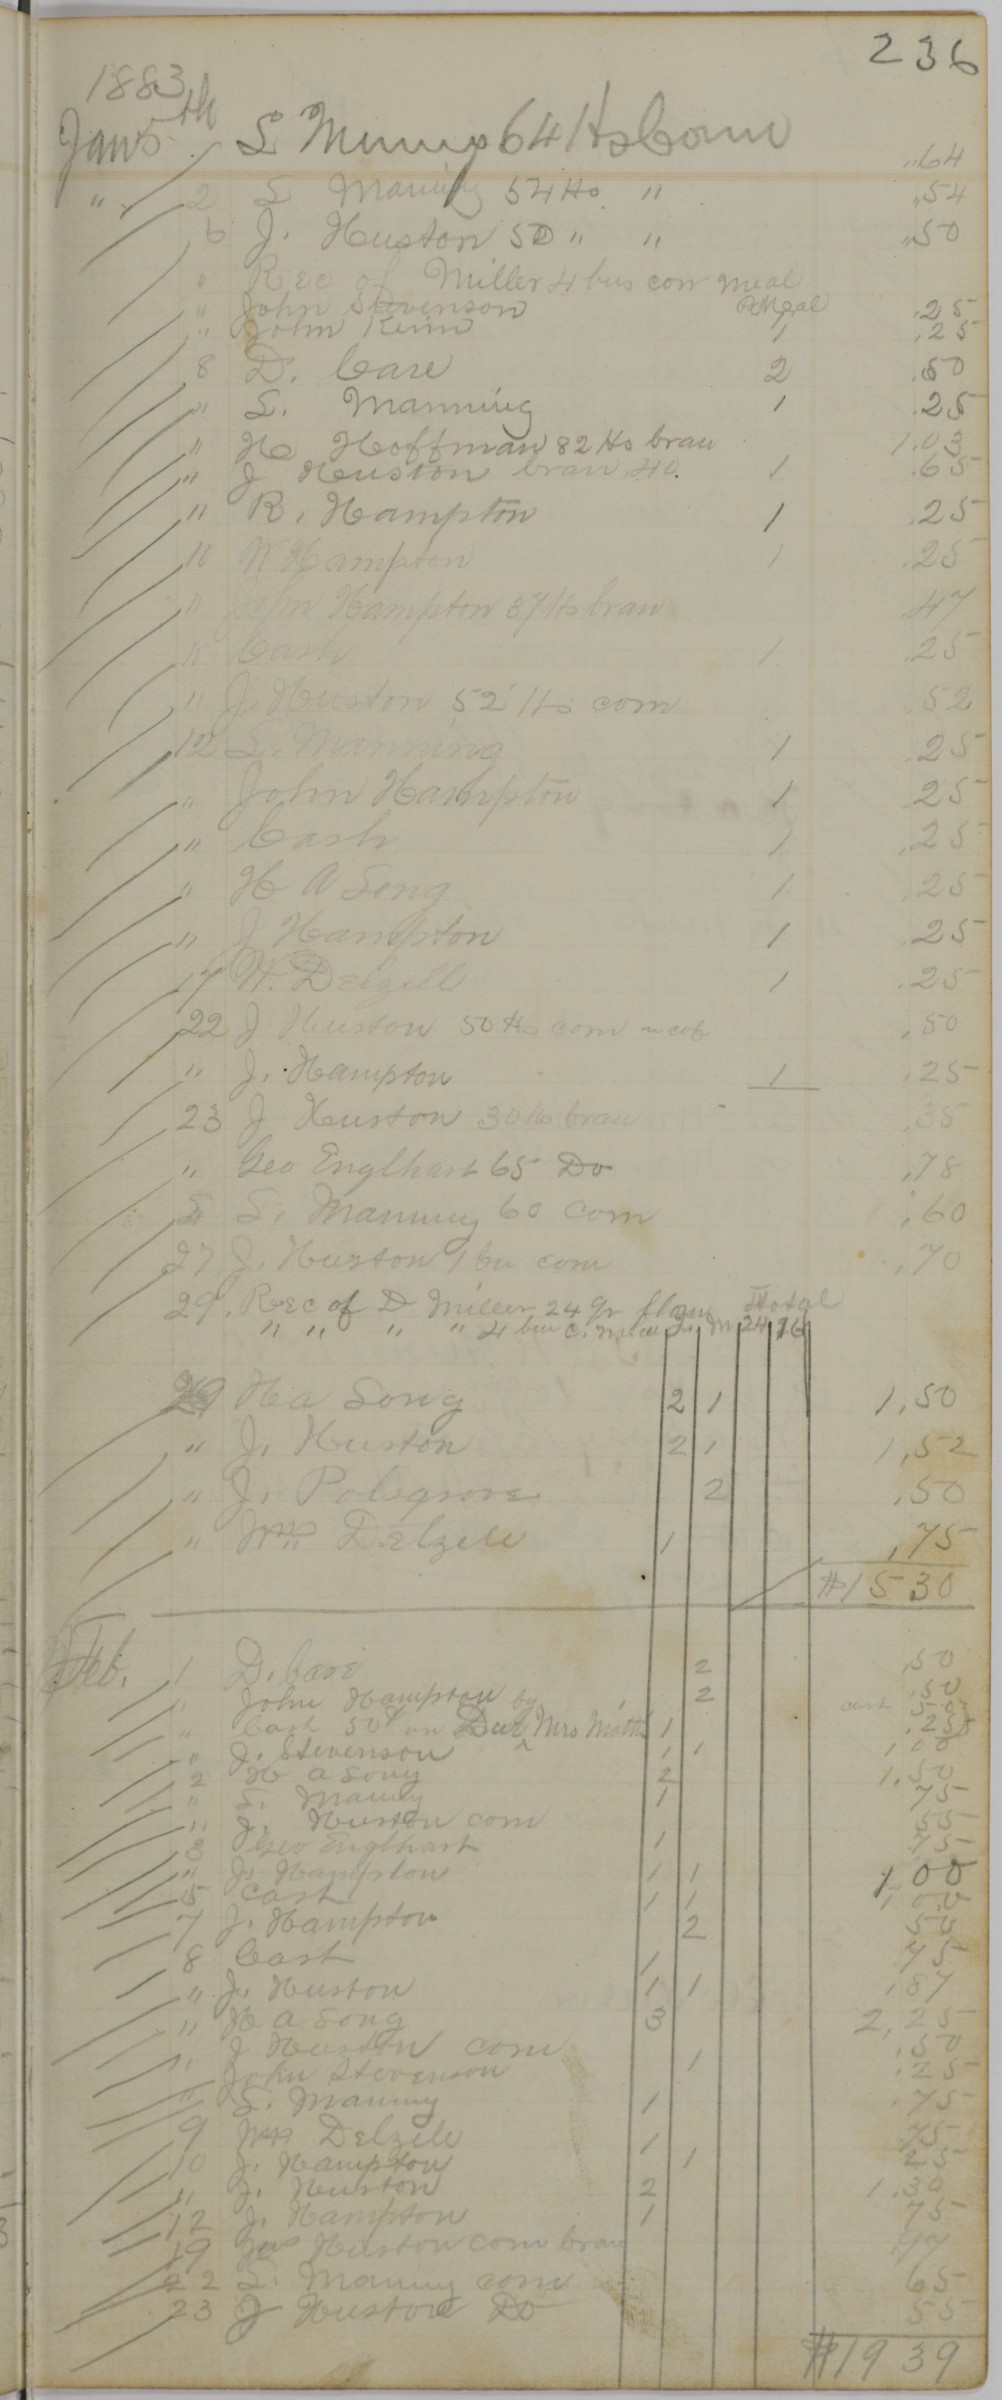 236
1883
Jan 5th S Mannig 64 lbs corn .64
" 2 S Manning 54 lbs " .54
6 J. Huston 50 " " .50
" Rec of Miller 4 bus corn meal
" John Stevenson P Meal .25
" John Keim 1 .25
8 D. Care 2 .50
" S. Manning 1 .25
" H Hoffman 82 lbs bran 1.03
" J Huston bran 40. 1 .65
" R. Hampton 1 .25
10 W Hampton 1 .25
" John Hampton 37 lbs bran .47
" Cash 1 .25
" J. Huston 52 lbs corn .52
12 S. Manning 1 .25
" John Hampton 1 .25
" Cash 1 .25
" H A Song 1 .25
" J Hampton 1 .25
17 W. Delzell 1 .25
22 J Huston 50 lbs corn in cob .50
" J. Hampton 1 .25
23 J Huston 30 lbs bran .35
" Geo Englhart 65 Do .78
S. Manning 60 corn .60
27 J. Huston 1 bu corn .70
29. Rec of D Miller 24 qr flour Total
" " " " 4 bus C. Meal M 24 16
29 H a Song 2 1 1,50
" J. Huston 2 1 1,52
" J. Polsgrove 2 ,50
" Delzell 1 ,75
$15 30
Feb. 1 D. Care 2 .50
" John Hampton by 2 .50
" Cash 50 on Due Mrs Motts 1 cash .25
" J. Stevenson 1 1 1 00
2 H a Song 2 1.50
" S. Manny 1 75
" J. Huston corn 55
3 Geo Englhart 1 75
" J. Hampton 1 1 1 00
5 Cash 1 1 1 00
7 J. Hampton 2 50
8 Cash 1 75
" J. Huston 1 1 1 87
" H a Song 3 2,25
" J Huston corn .50
" John Stevenson 1 .25
" S. Manny 1 75
9 Delzele 1 75
10 J. Hampton 1 25
" J. Huston 2 1.30
12 J. Hampton 1 75
19 Huston corn bran 97
22 S. Manny corn 65
23 J Huston Do 55
$19 39